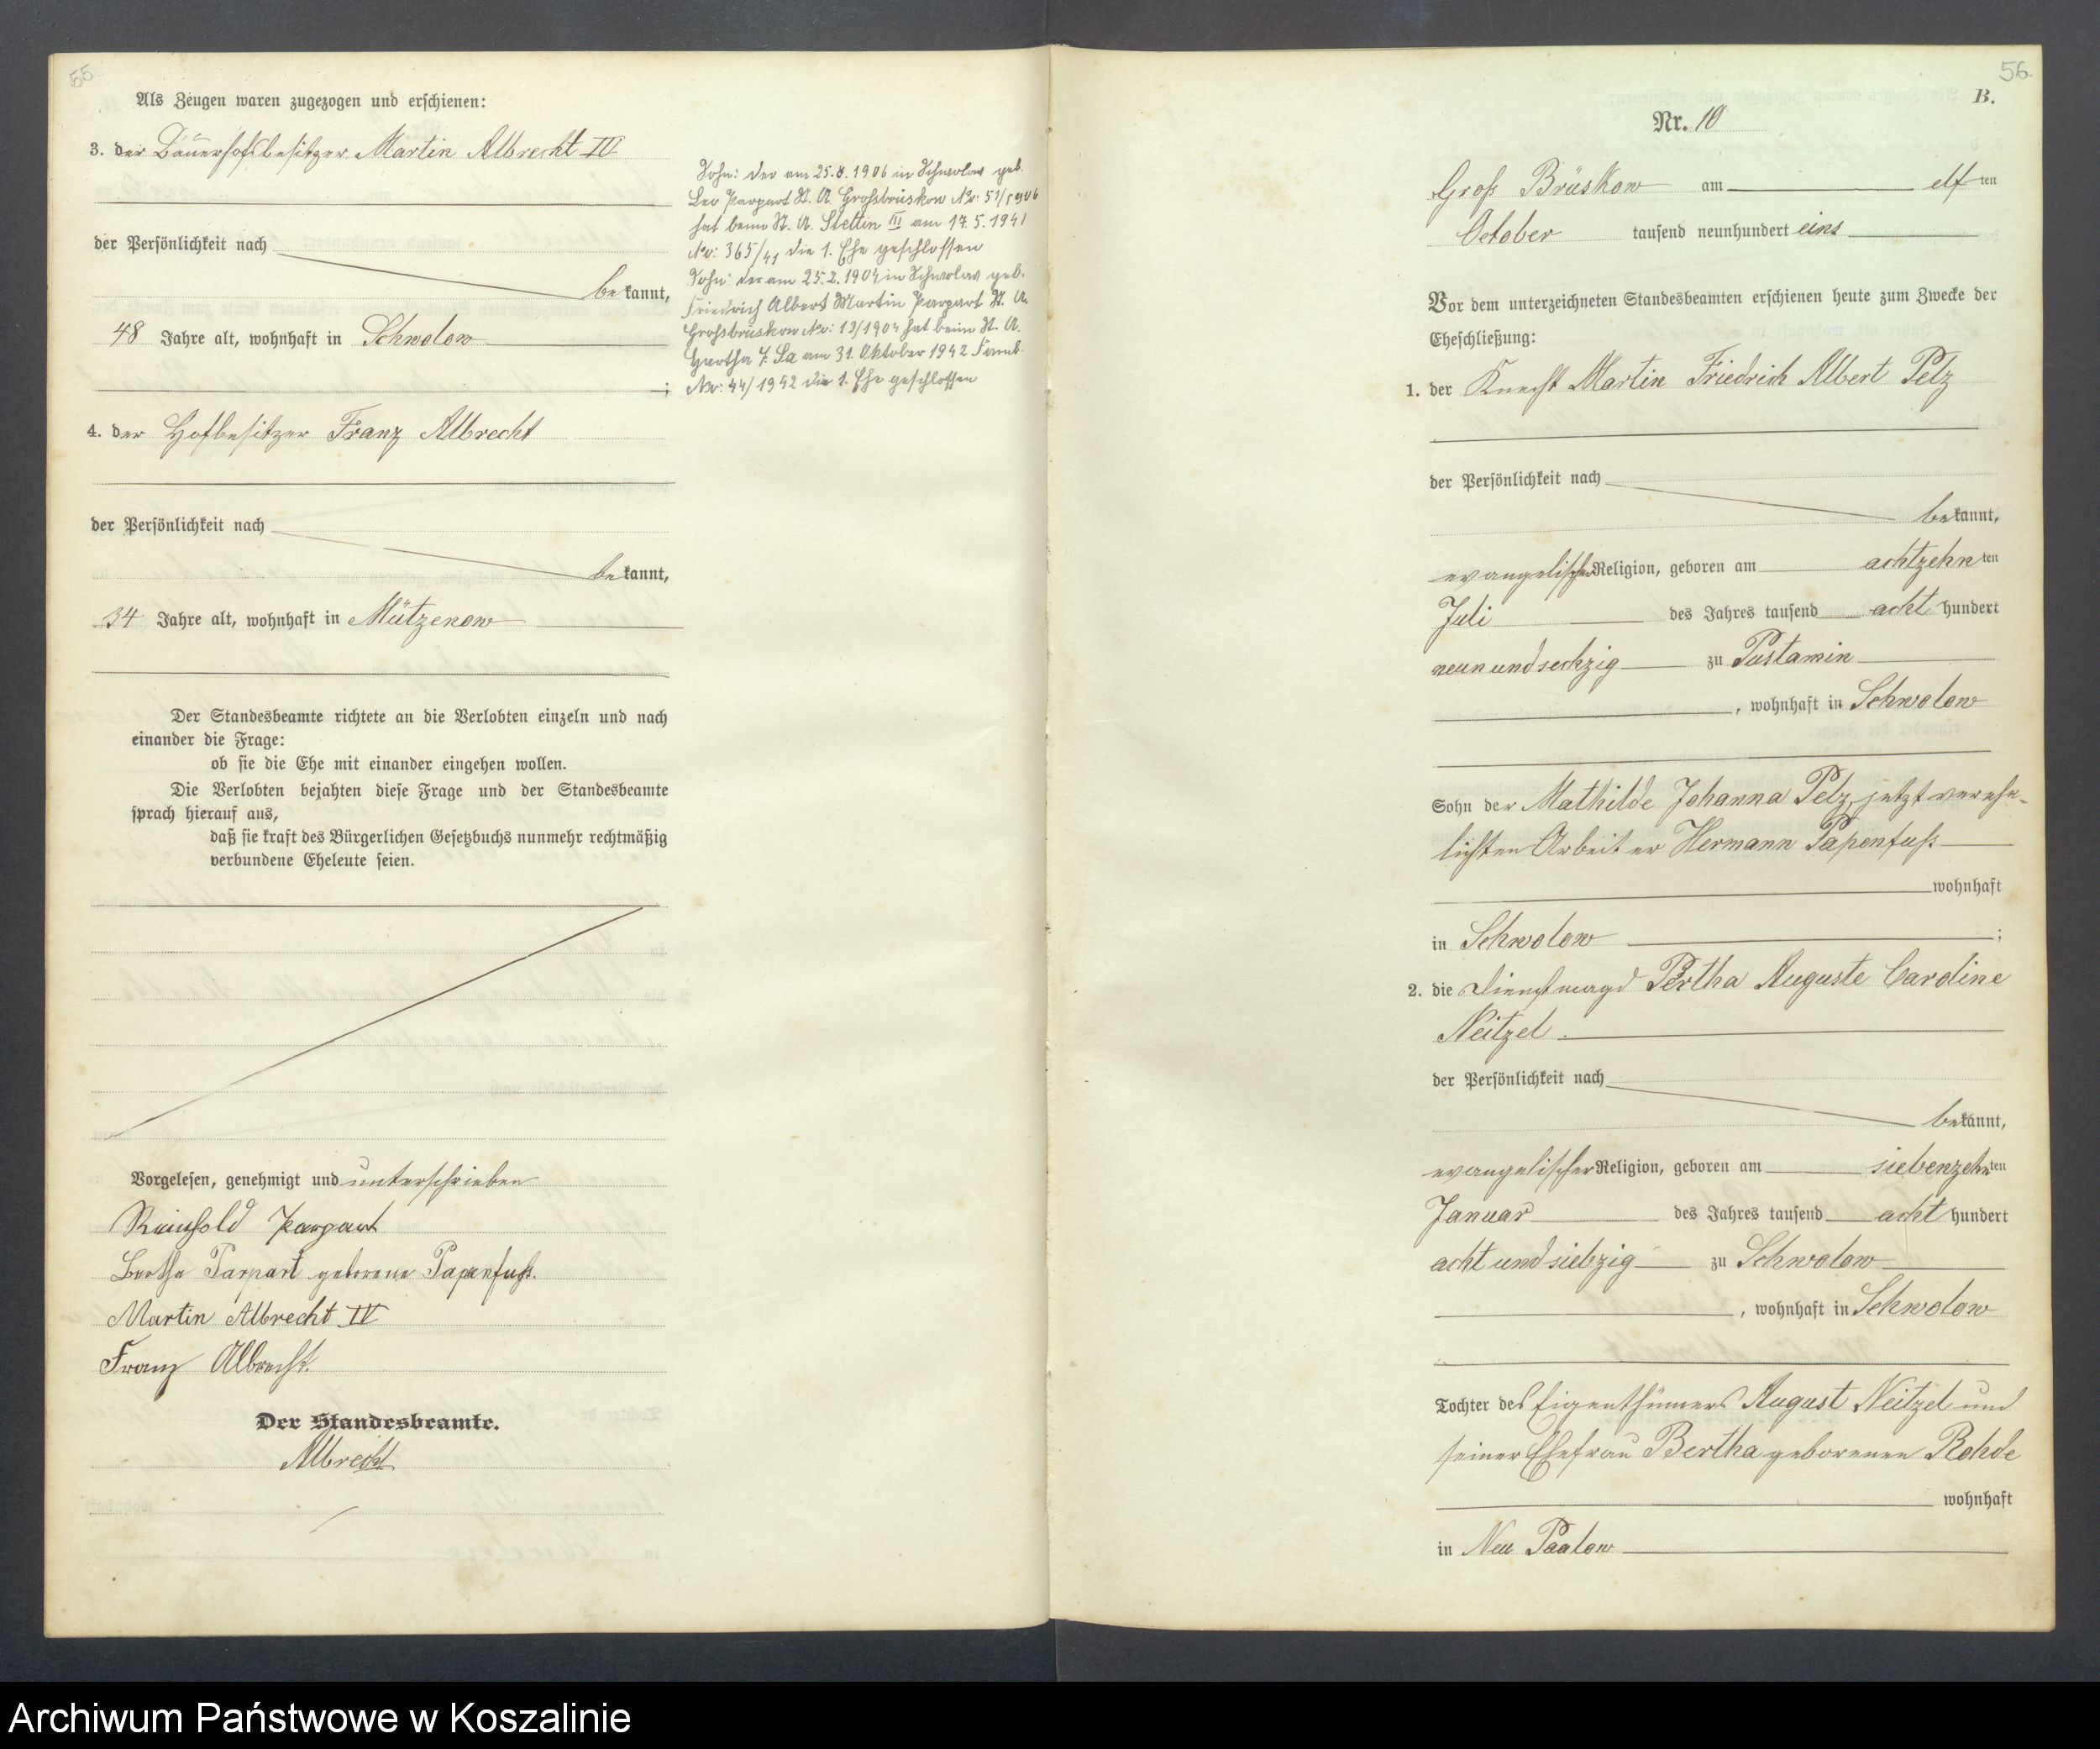 55
Als Zeugen waren zugezogen und erschienen:
3. der Bauerhofsbesitzer Martin Albrecht IV
der Persönlichkeit nach
bekannt,
48 Jahre alt, wohnhaft in Schwolow
;
4. der Hofbesitzer Franz Albrecht
der Persönlichkeit nach
bekannt,
34 Jahre alt, wohnhaft in Mützenow
Der Standesbeamte richtete an die Verlobten einzeln und nach
einander die Frage:
ob sie die Ehe mit einander eingehen wollen.
Die Verlobten bejahten diese Frage und der Standesbeamte
sprach hierauf aus,
daß sie kraft des Bürgerlichen Gesetzbuchs nunmehr rechtmäßig
verbundene Eheleute seien.
Vorgelesen, genehmigt und unterschrieben
Reinhold Parpart
Bertha Parpart geborene Papenfuß.
Martin Albrecht IV
Franz Albrecht.
Der Standesbeamte.
Albrecht
Sohn: der am 25.8.1906 in Schwolow geb.
Leo Parpart St. A. Großbrüskow Nr: 51/1906
hat beim St. A. Stettin III am 17.5.1941
Nr: 365/41 die 1. Ehe geschlossen
Sohn: der am 25.2.1904 in Schwolow geb.
Friedrich Albert Martin Parpart St. A.
Großbrüskow Nr: 13/1904 hat beim St. A.
Hartha /: Sa am 31. Oktober 1942
Nr: 44/1942 die 1. Ehe geschlossen
56.
B.
Nr. 10
Groß Brüskow am elften
October tausend neunhundert eins
Vor dem unterzeichneten Standesbeamten erschienen heute zum Zwecke der
Eheschließung:
1. der Knecht Martin Friedrich Albert Pelz
der Persönlichkeit nach
bekannt,
evangelischer Religion, geboren am achtzehnten
Juli des Jahres tausend acht hundert
neunundsechzig zu Pustamin
, wohnhaft in Schwolow
Sohn der Mathilde Johanna Pelz, jetzt vereh-
lichten Arbeiter Hermann Papenfuß
wohnhaft
in Schwolow ;
2. die Dienstmagd Bertha Auguste Caroline
Neitzel.
der Persönlichkeit nach
bekannt,
evangelischer Religion, geboren am siebenzehnten
Januar des Jahres tausend acht hundert
achtundsiebzig zu Schwolow
, wohnhaft in Schwolow
Tochter des Eigenthümers August Neitzel und
seiner Ehefrau Bertha geborenen Rohde
wohnhaft
in Neu Paalow
Archiwum Państwowe w Koszalinie